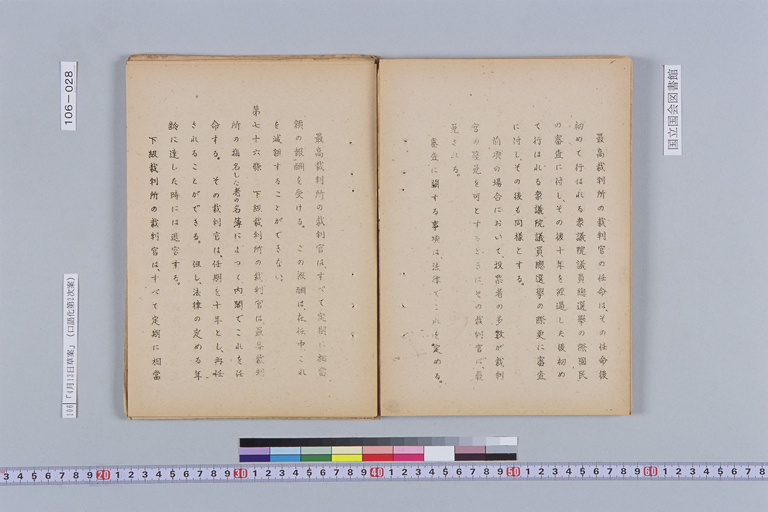 最高裁判所の裁判官の任命は、その任命後
初めて行はれる衆議院議員總選擧の際國民
の審査に付し、その後十年を經過した後初め
て行はれる衆議院議員總選擧の際更に審査
に付し、その後も同様とする。
前項の場合において、投票者の多數が裁判
官の罷免を可とするときはその裁判官は、罷
免される。
審査に關する事項は、法律でこれを定める。
最高裁判所の裁判官は、すべて定期に相當
額の報酬を受ける。この報酬は、在任中これ
を減額することができない。
第七十六條 下級裁判所の裁判官は最高裁判
所の指名した者の名簿によつて内閣でこれを任
命する。その裁判官は、任期を十年とし、再任
されることができる。但し、法律の定める年
齢に達した時には退官する。
下級裁判所の裁判官は、すべて定期に相當
106-028
106「4月13日草案」(口語化第2次案)
国立国会図書館
3 4 5 6 7 8 9 20 1 2 3 4 5 6 7 8 9 30 1 2 3 4 5 6 7 8 9 40 1 2 3 4 5 6 7 8 9 50 1 2 3 4 5 6 7 8 9 60 1 2 3 4 5 6 7 8